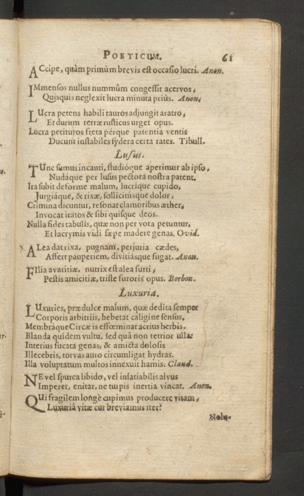 POETICUM. 61
ACcipe, quàm primùm brevis est occasio lucri. Anon.
IMmensos nullus nummûm congessit acervos,
Quisquis neglexit lucra minuta priùs. Anon.
LUcra petens habili tauros adjungit aratro,
Et durum terræ rusticus urget opus.
Lucra petituros freta pérque patentia ventis
Ducunt instabiles sydera certa rates. Tibull.
Lusus.
TUnc sumus incauti, studióque aperimur ab ipso,
Nudáque per lusus pectora nostra patent.
Ira subit deforme malum, lucrique cupido,
Jurgiáque, & rixæ, sollicitúsque dolor,
Crimina dicuntur, resonat clamoribus æther,
Invocat iratos & sibi quisque deos.
Nulla fides tabulis, quæ non per vota petuntur,
Et lacrymis vidi sæpe madere genas. Ovid.
ALea datrixa, pugnam, perjuria cædes,
Affert pauperiem, divitiásque fugat. Anon.
FIlia avaritiæ, nutrix est alea furti,
Pestis amicitiæ, triste furoris opus. Borbon.
Luxuria.
LUxuries, præ dulce malum, quæ dedita semper
Corporis arbitriis, hebetat caligine sensus,
Membráque Circæis effœminat acrius herbis,
Blanda quidem vultu, sed quâ non tetrior ulla:
Interius fucata genas, & amicta dolosis
Illecebris, torvas auro circumligat hydras.
Illa voluptatum multos innexuit hamis. Claud.
NE vel spurca libido, vel insatiabilis alvus
Imperet, enitar, ne turpis inertia vincat. Anon.
QUi fragilem longè cupimus producere vitam,
Luxuriâ vitæ cur breviamus iter?